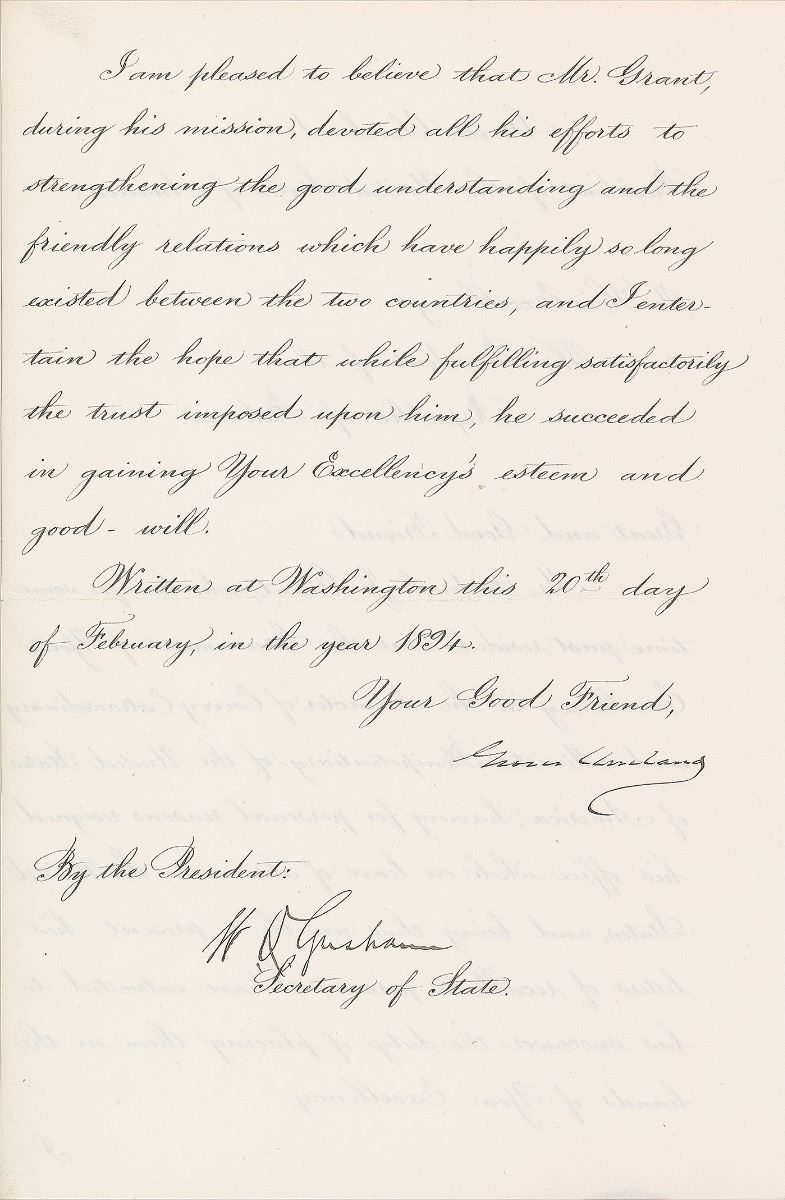 I am pleased to believe that Mr. Grant,
during his mission, devoted all his efforts to
strengthening the good understanding and the
friendly relations which have happily so long
existed between the two countries, and I enter-
tain the hope that while fulfilling satisfactorily
the trust imposed upon him, he succeeded
in gaining Your Excellency's esteem and
good-will.
Written at Washington this 20th day
of February, in the year 1894.
Your Good Friend,
Grover Cleveland
By the President:
W Q Gresham
Secretary of State.